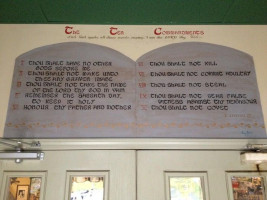 The Ten Commandments
I THOU SHALT HAVE NO OTHER
GODS BEFORE ME
II THOU SHALT NOT MAKE UNTO
THEE ANY GRAVEN IMAGE
III THOU SHALT NOT TAKE THE NAME
OF THE LORD THY GOD IN VAIN
IV REMEMBER THE SABBATH DAY,
TO KEEP IT HOLY
V HONOUR THY FATHER AND MOTHER
THOU SHALT NOT KILL
THOU SHALT NOT COMMIT ADULTERY
THOU SHALT NOT STEAL
THOU SHALT NOT BEAR FALSE
WITNESS AGAINST THY NEIGHBOUR
THOU SHALT NOT COVET